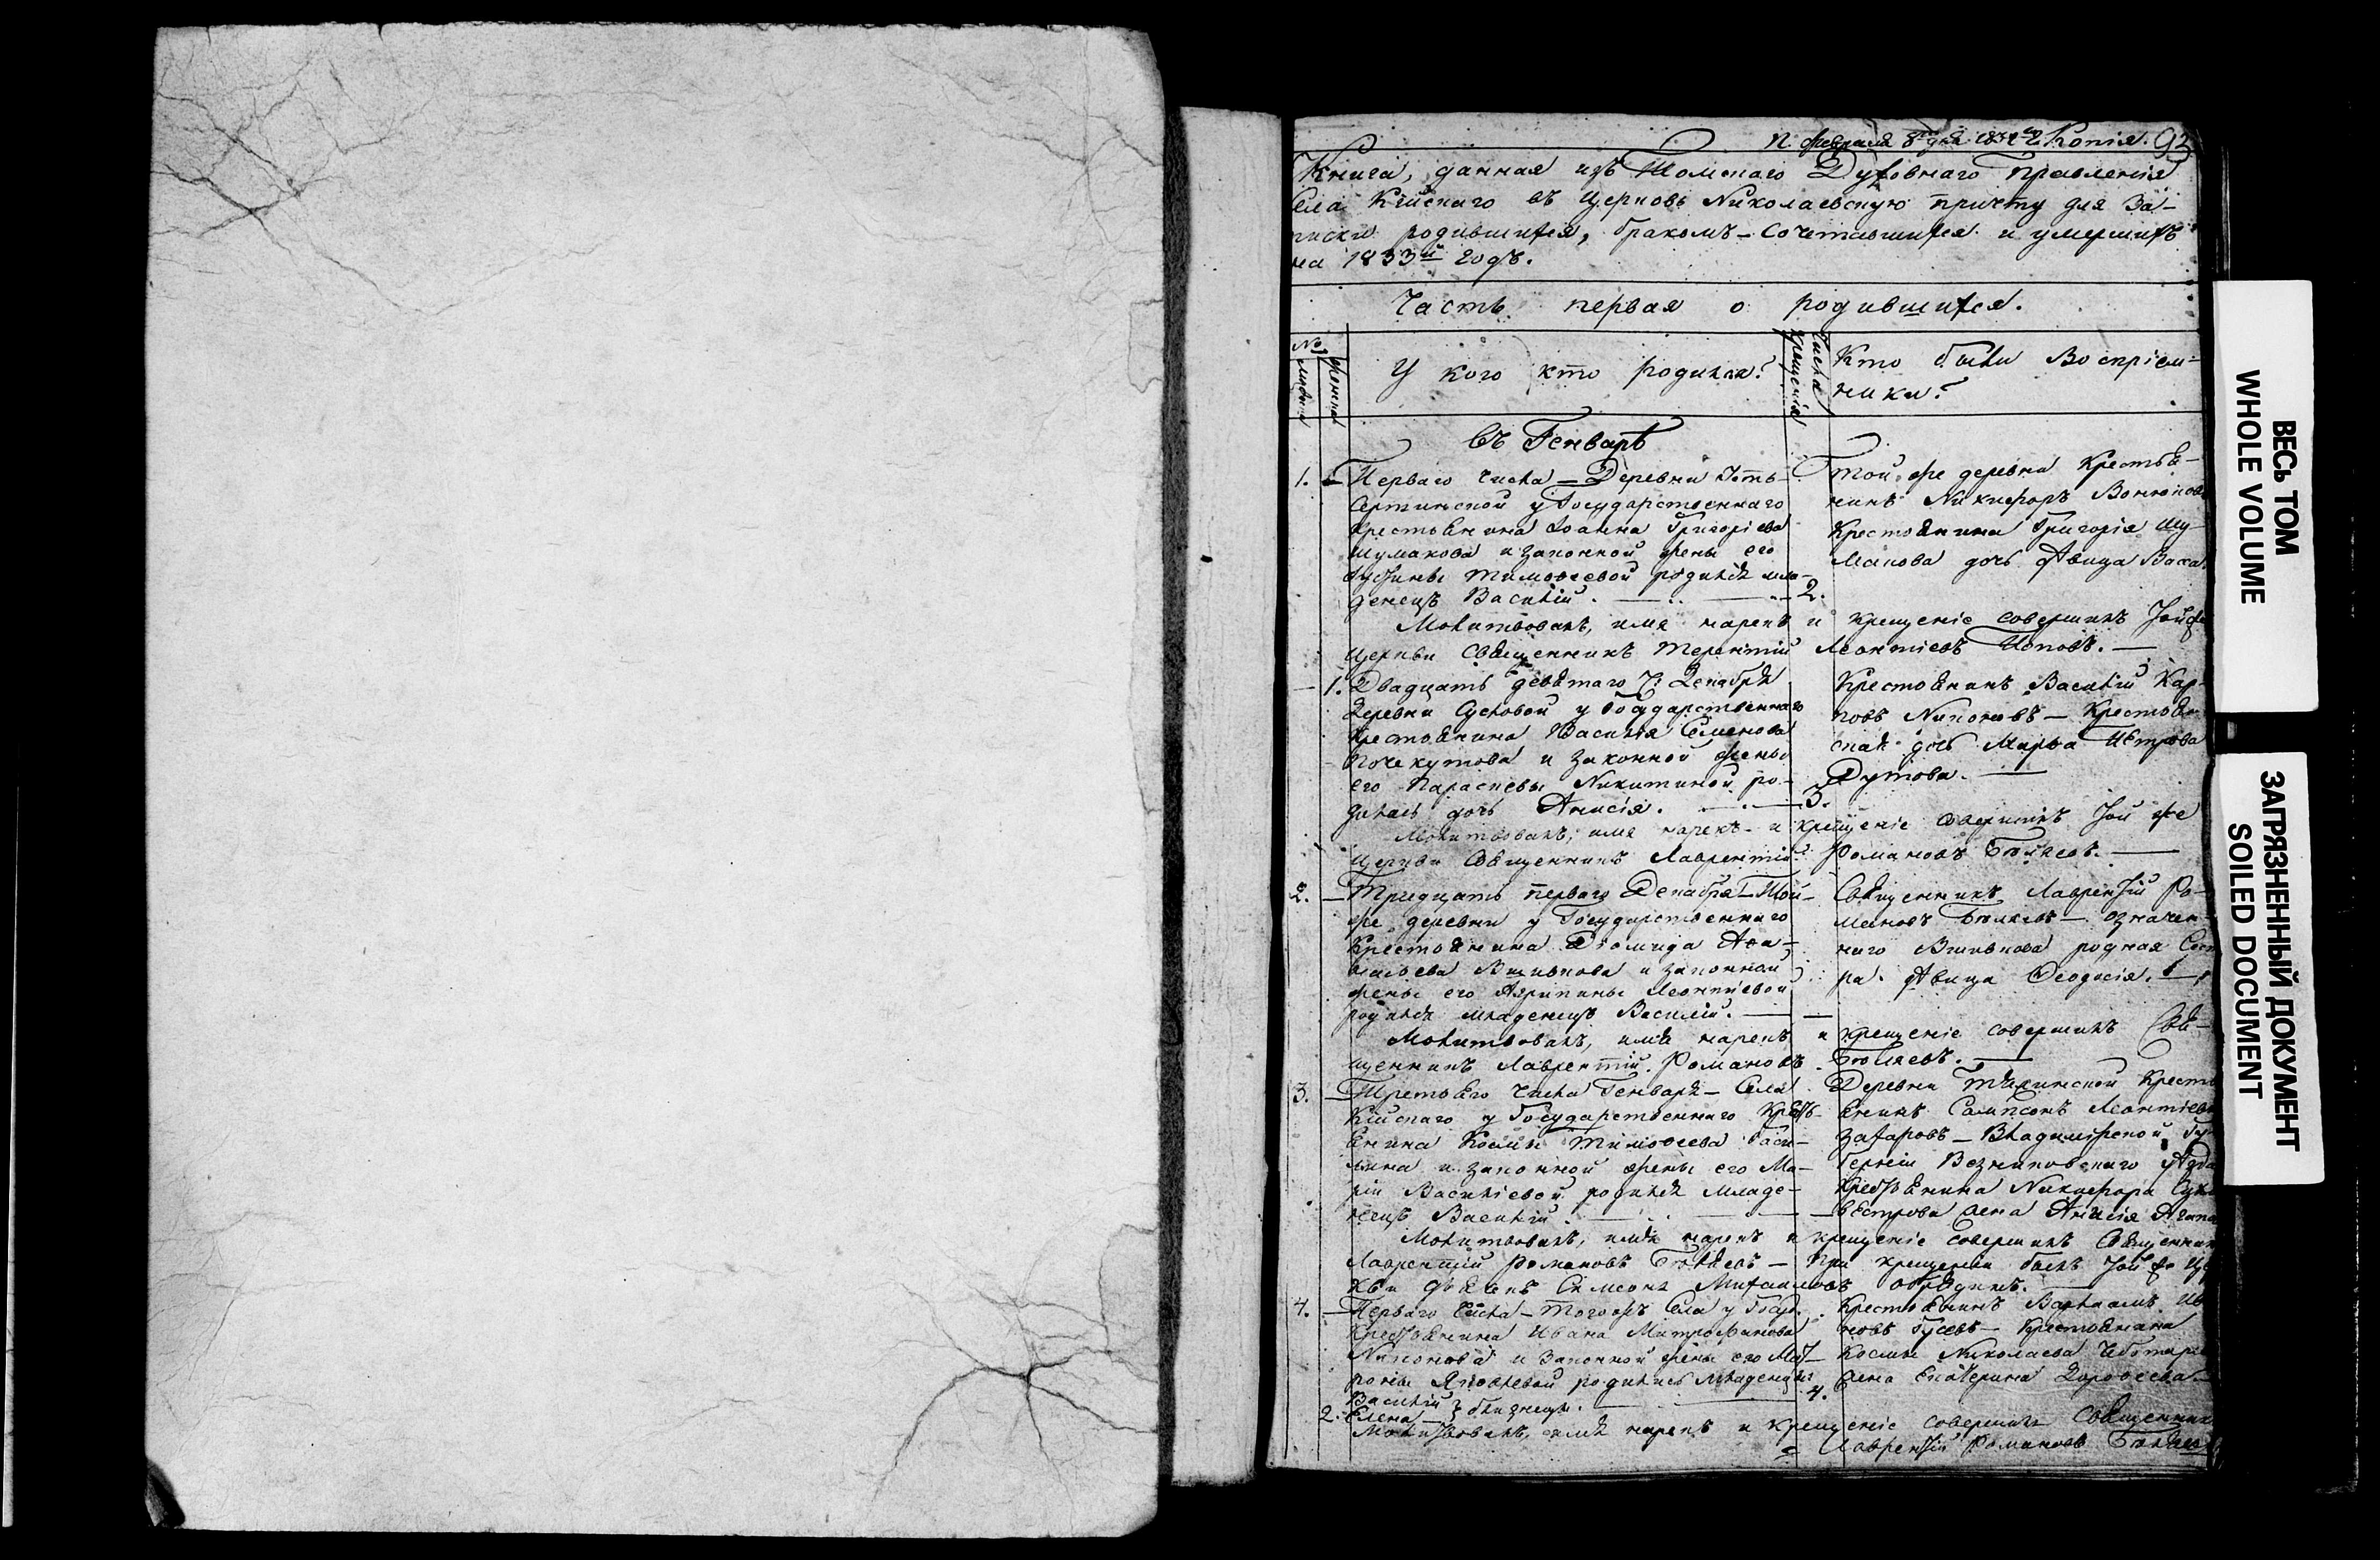 п. февраля 8го дня 1834го Копія. 92
Книга, данная изъ Томскаго Духовнаго Правленія
Села Кійскаго въ Церковь Николаевскую причту для За-
писки родившихся, бракомъ-Сочетавшихся и умершихъ
на 1833й годъ.
Часть первая о родившихся.
№
женска
У кого кто родился?
Числа крещенія
Кто были Воспріем-
ники?
Въ Генварѣ
1. Перваго числа — Деревни Усть-
Сертинской у Государственнаго
крестьянина Іоанна Григорьева
Шумакова и законной жены его
Тимоѳеевой родился мла-
денецъ Василій. 2.
Той же деревни Крестья-
нинъ Никифоръ
Крестьянина Григорія Шу-
макова дочь дѣвица
Молитвовалъ, имя нарекъ и крещеніе совершилъ Той же
Церкви Священникъ Терентій Леонтіевъ Поповъ.
1. Двадцать девятаго Ч: Декабря
Деревни Сусловой у Государственнаго
Крестьянина Василія Семенова
Почекутова и законной жены
его Параскевы Никитиной ро-
дилась дочь Анисія. 3.
Крестьянинъ Василій Кар-
повъ Никоновъ — Крестьян-
ская дочь Марѳа Петрова
Дутова.
Молитвовалъ, имя нарекъ и крещеніе совершилъ Той же
Церкви Священникъ Лаврентій Романовъ
2. Тридцать перваго Декабря — Той-
же деревни у Государственнаго
Крестьянина Діомида Ана-
ньева и законной
жены его Агрипины Леонтіевой
родился младенецъ Василій.
Священникъ Лаврентій Ро-
мановъ — означен-
наго родная Сест
ра дѣвица Ѳеодосія.
Молитвовалъ, имя нарекъ и крещеніе совершилъ Свя-
щенникъ Лаврентій Романовъ
3. Третьяго Числа Генваря — Села
Кійскаго у Государственнаго Кресть-
янина Космы Тимоѳеева
и законной жены его Ма-
ріи Василіевой родился Младе-
нецъ Василій.
Деревни Тяжинской Кресть
янинъ Сампсонъ Леонтіевъ
Захаровъ — Владимірской Гу-
берніи Вязниковскаго уѣзда
Крестьянина Никифора
жена Анисія
Молитвовалъ, имя нарекъ и крещеніе совершилъ Священник
Лаврентій Романовъ — При крещеніи былъ Той же Цер
кви Дьячекъ Симеонъ Михайловъ
4. Перваго Числа — Тогожъ Села у Госуд.
Крестьянина Ивана Митрофанова
Никонова и Законной жены его Мат-
роны Яковлевой родились Младенцы 4.
Василій
2. Елена } близнецы.
Крестьянинъ Варлаамъ Ива
новъ Гусевъ — Крестьянина
Космы Николаева Чеботаре
жена Екатерина Дороѳеева
Молитвовалъ, имя нарекъ и крещеніе совершилъ Священник
Лаврентій Романовъ
ВЕСЬ ТОМ
WHOLE VOLUME
ЗАГРЯЗНЕННЫЙ ДОКУМЕНТ
SOILED DOCUMENT